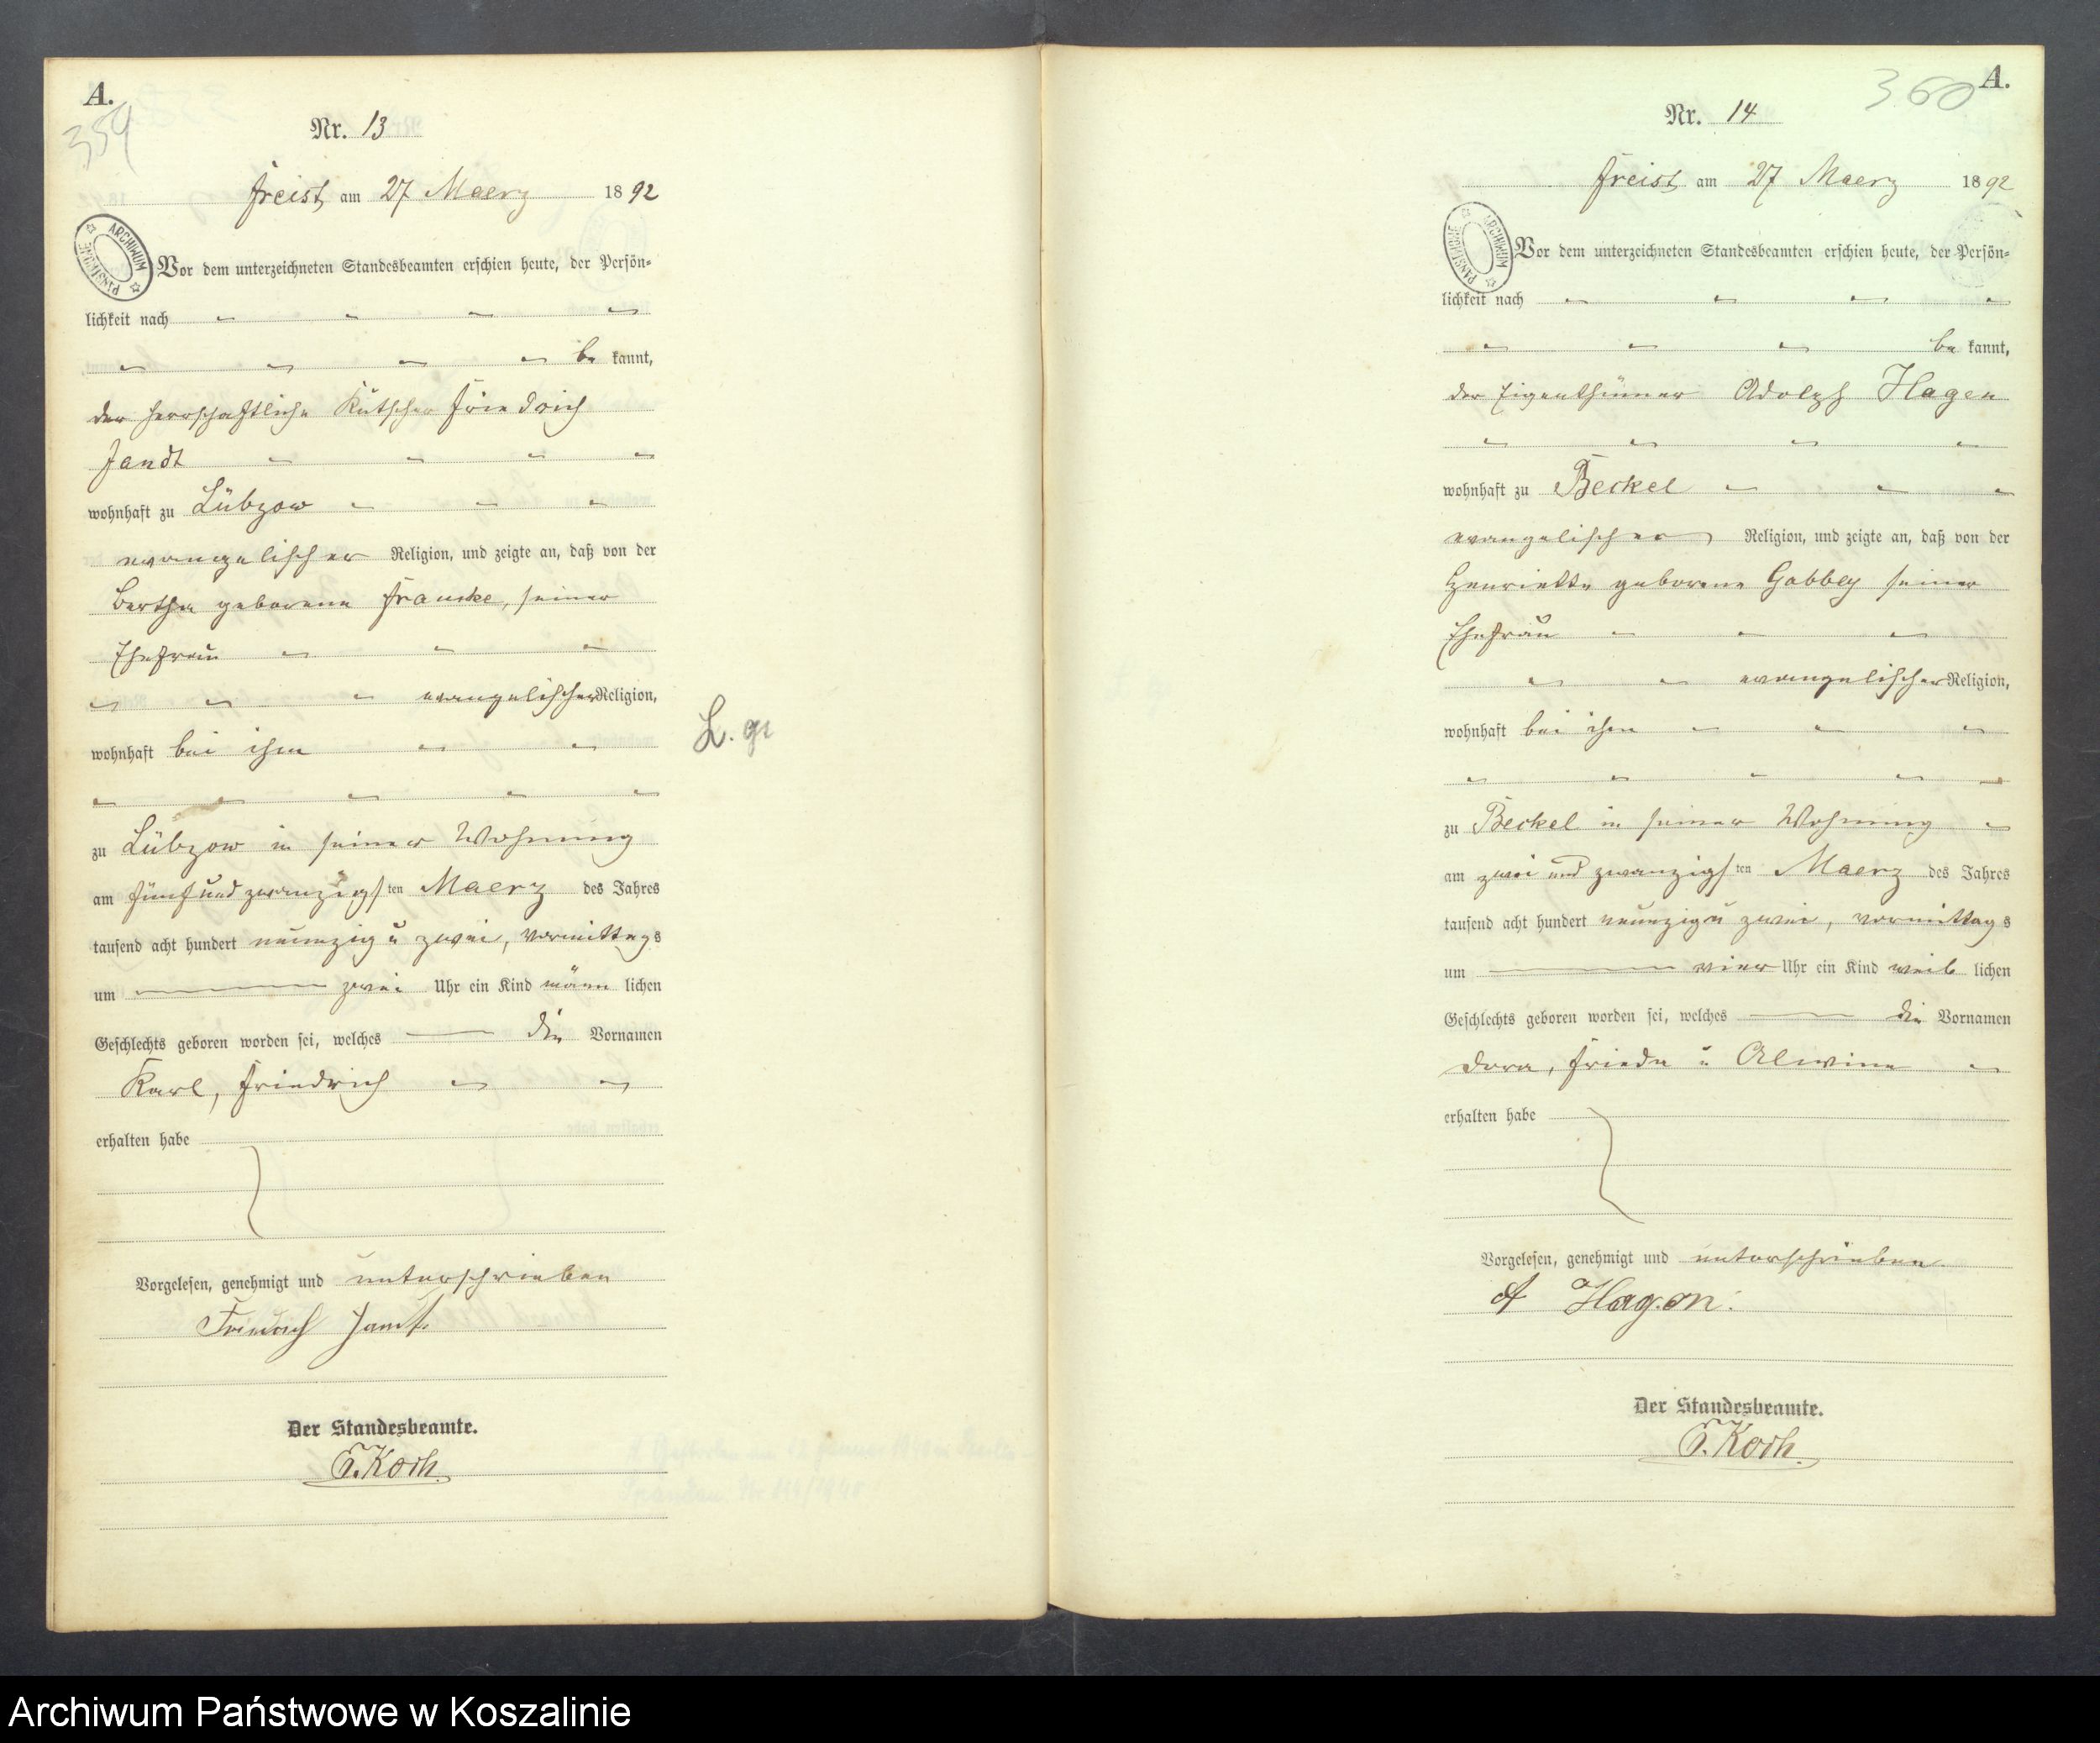 A.
359
Nr. 13
Freist, am 27 Maerz 1892
ARCHIWUM PAŃSTWOWE
Vor dem unterzeichneten Standesbeamten erschien heute, der Persön=
lichkeit nach
be kannt,
der herrschaftliche Kutscher Friedrich
Jandt
wohnhaft zu Lübzow
evangelischer Religion, und zeigte an, daß von der
Bertha geborene Francke, seiner
Ehefrau
evangelischer Religion,
wohnhaft bei ihm
zu Lübzow in seiner Wohnung
am fünf und zwanzigsten Maerz des Jahres
tausend acht hundert neunzig u zwei, vormittags
um zwei Uhr ein Kind männlichen
Geschlechts geboren worden sei, welches die Vornamen
Karl, Friedrich
erhalten habe
Vorgelesen, genehmigt und unterschrieben
Friedrich Jandt.
Der Standesbeamte.
Koch.
A.
360
Nr. 14
Freist, am 27 Maerz 1892
ARCHIWUM PAŃSTWOWE
Vor dem unterzeichneten Standesbeamten erschien heute, der Persön=
lichkeit nach
be kannt,
der Eigenthümer Adolph Hagen
wohnhaft zu Beckel
evangelischer Religion, und zeigte an, daß von der
Henriette geborene Gabbey seiner
Ehefrau
evangelischer Religion,
wohnhaft bei ihm
zu Beckel in seiner Wohnung
am zwei und zwanzigsten Maerz des Jahres
tausend acht hundert neunzig u zwei, vormittags
um vier Uhr ein Kind weiblichen
Geschlechts geboren worden sei, welches die Vornamen
Dora, Frieda u Alwine
erhalten habe
Vorgelesen, genehmigt und unterschrieben
A Hagen.
Der Standesbeamte.
Koch.
Archiwum Państwowe w Koszalinie